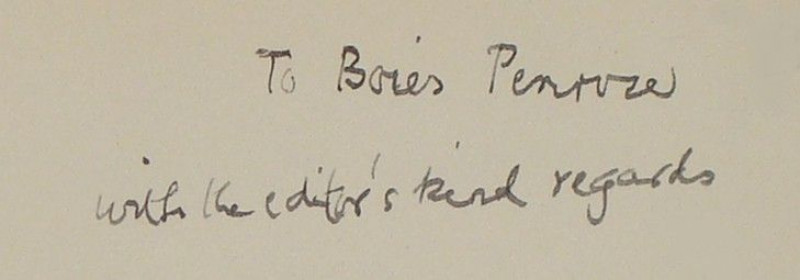 To Boies Penrose
with the editor's kind regards